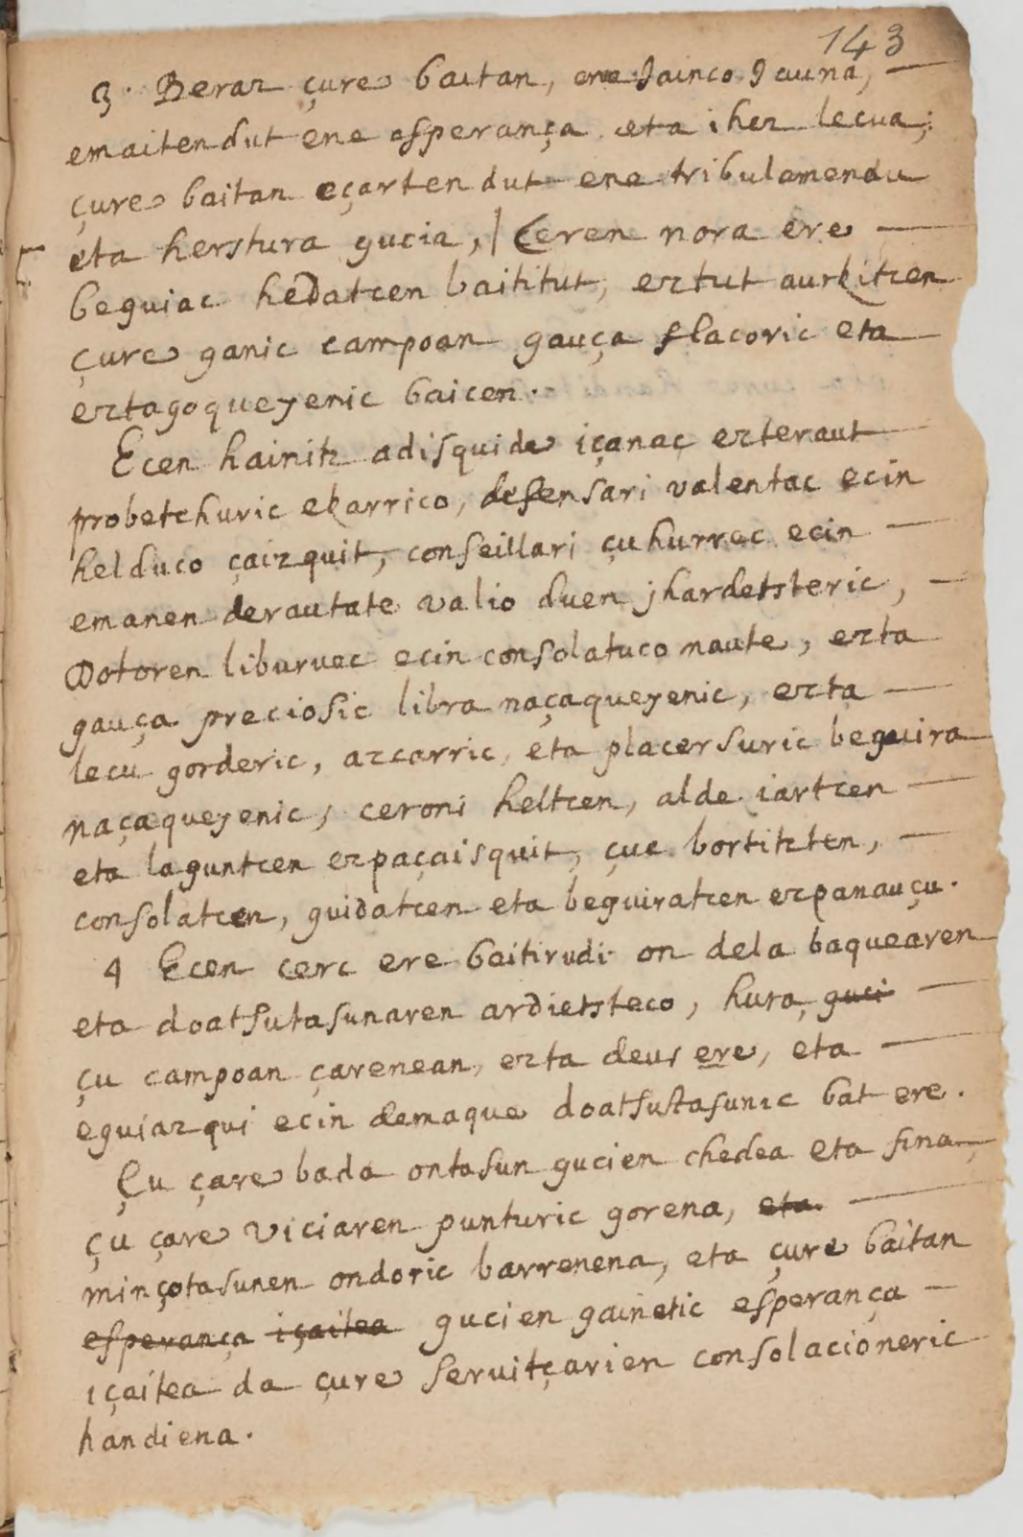 143
3. Beraz çure baitan, ene Jainco Jauna, —
emaiten dut ene esperança eta ihez lecua;
çure baitan eçarten dut ene tribulamendu
eta herstura gucia, | Ceren nora ere —
beguiac hedatcen baititut, eztut aurkitcen
çure ganic campoan gauça flacoric eta
eztagoqueyenic baicen.
Ecen hainitz adisquide içanac ezteraut
probetchuric ekarrico, defensari valentac ecin
helduco çaizquit, conseillari çuhurrec ecin —
emanen derautate valio duen jhardetsteric, —
Dotoren liburuec ecin consolatuco naute, ezta
gauça preciosic libra naçaqueyenic, ezta —
lecu gorderic, azcarric, eta placersuric beguira
naçaqueyenic, ceroni heltcen, alde iartcen —
eta laguntcen ezpaçaisquit, çuc bortitzten, —
consolatcen, guidatcen eta beguiratcen ezpanauçu.
4 Ecen cerc ere baitirudi on dela baquearen
eta doatsutasunaren ardietsteco, hura, guci —
çu campoan çarenean, ezta deus ere, eta —
eguiazqui ecin demaque doatsutasunic bat ere.
Çu çare bada ontasun gucien chedea eta fina,
çu çare viciaren punturic gorena, eta —
minçotasunen ondoric barrenena, eta çure baitan
esperança içaitea gucien gainetic esperança —
içaitea da çure seruitçarien consolacioneric
handiena.